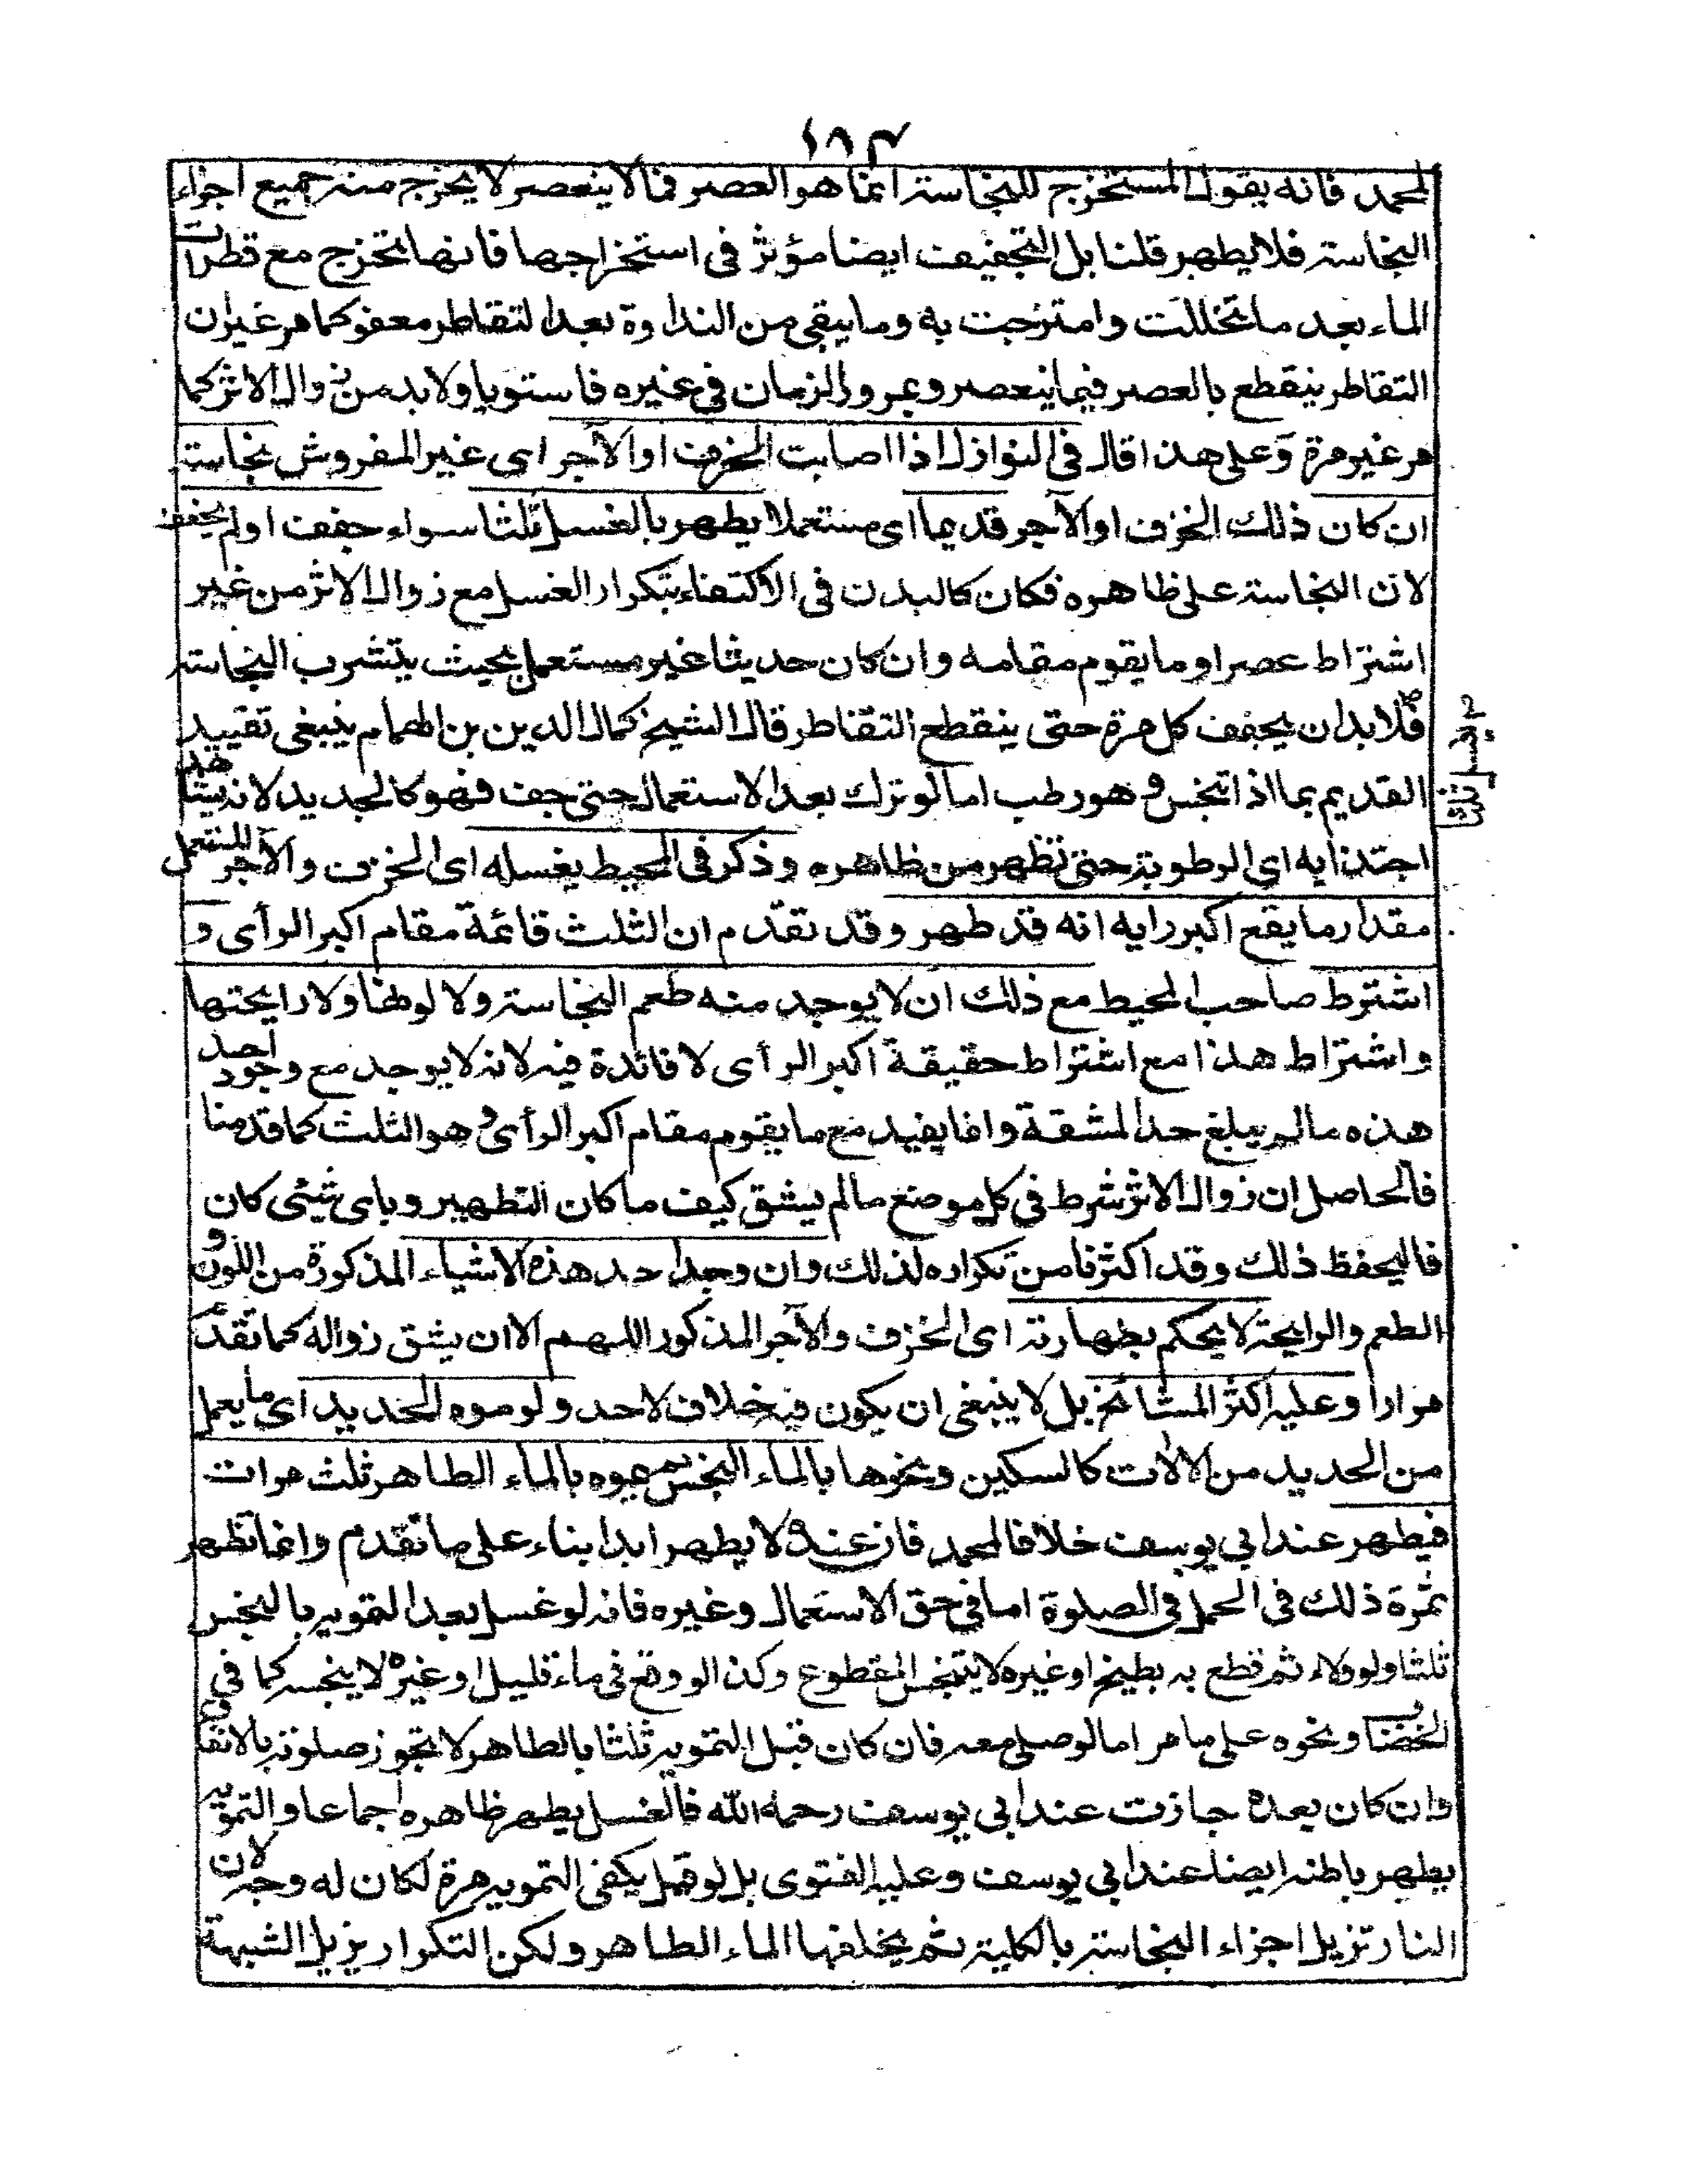 ١٨٣
لمحمد فانه يقول المستخرج للنجاسة انما هو العصر فما لا ينعصر لا يخرج منه جميع اجزاء
النجاسة فلا يطهر قلنا بل التجفيف ايضا مؤثر فى استخراجها فانها تخرج مع قطرات
الماء بعد ما تخللت وامتزجت به وما يبقى من النداوة بعد التقاطر معفو كما مر غير ان
التقاطر ينقطع بالعصر فيما ينعصر وبمرور الزمان في غيره فاستويا ولا بد من زوال الاثر كما
مر غير مرة وعلى هذا قال فى النوازل اذا اصابت الخزف او الآجر اى غير المفروش نجاسة
ان كان ذلك الخزف او الآجر قديما اى مستعملا يطهر بالغسل ثلثا سواء جفف او لم يجفف
لان النجاسة على ظاهره فكان كالبدن فى الاكتفاء بتكرار الغسل مع زوال الاثر من غير
اشتراط عصر او ما يقوم مقامه وان كان حديثا غير مستعمل بحيث يتشرب النجاسة
فلا بد ان يجفف كل مرة حتى ينقطع التقاطر قال الشيخ كمال الدين بن الهمام ينبغى تقييد
القديم بما اذا تنجس و هو رطب اما لو ترك بعد الاستعمال حتى جف فهو كالجديد لانه يشاهد
اجتذابه اي الرطوبة حتى تظهر من ظاهره وذكر فى المحيط يغسله اى الخزف والآجر المستعمل
مقدار ما يقع اكبر رايه انه قد طهر وقد تقدم ان الثلث قائمة مقام اكبر الرأى و
اشترط صاحب المحيط مع ذلك ان لا يوجد منه طعم النجاسة ولا لونها ولا رايحتها
واشتراط هذا مع اشتراط حقيقة اكبر الرأى لا فائدة فيه لانه لا يوجد مع وجود احد
هذه ما لم يبلغ حد المشقة وانما يفيد مع ما يقوم مقام اكبر الرأى و هو الثلث كما قدمنا
فالحاصل ان زوال الاثر شرط في كل موضع ما لم يشق كيف ما كان التطهير وباى شيئى كان
فاليحفظ ذلك وقد اكثرنا من تكراره لذلك وان وجد احد هذه الاشياء المذكورة من اللون و
الطعم والرايحة لا يحكم بطهارته اى الخزف والآجر المذكور اللهم الا ان يشق زواله كما تقدم
مرارا وعليه اكثر المشائخ بل لا ينبغى ان يكون فيه خلاف لاحد ولو موه الحديد اى ما يعمل
من الحديد من الالات كالسكين ونحوها بالماء النجس ثم يموه بالماء الطاهر ثلث مرات
فيطهر عند ابي يوسف خلافا لمحمد فان عنده لا يطهر ابدا بناء على ما تقدم وانما تظهر
ثمرة ذلك فى الحمل فى الصلوة اما في حق الاستعمال وغيره فانه لو غسل بعد التمويه بالنجس
ثلثا ولو ولاء ثم قطع به بطيخ او غيره لا يتنجس المقطوع وكذا لو وقع فى ماء قليل او غيره لا ينجسه كما في
الخضاب ونحوه على ما مر اما لو صلى معه فان كان قبل التمويه ثلثا بالطاهر لا تجوز صلوته بالاتفاق
وان كان بعده جازت عند ابي يوسف رحمه الله فالغسل يطهر ظاهره اجماعا والتمويه
يطهر باطنه ايضا عند ابي يوسف وعليه الفتوى بل لو قيل يكفى التمويه مرة لكان له وجه لان
النار تزيل اجزاء النجاسة بالكلية ثم يخلفها الماء الطاهر ولكن التكرار يزيل الشبهة